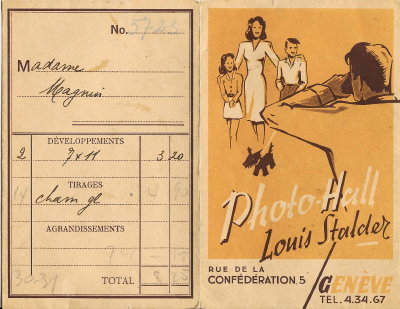 No. 5722
Madame
Magnin
DÉVELOPPEMENTS
2 7x11 3.20
TIRAGES
14 cham gl
AGRANDISSEMENTS
TOTAL 8 25
Photo-Hall
Louis Stalder
RUE DE LA
CONFÉDÉRATION, 5
GENÈVE
TEL. 4.34.67